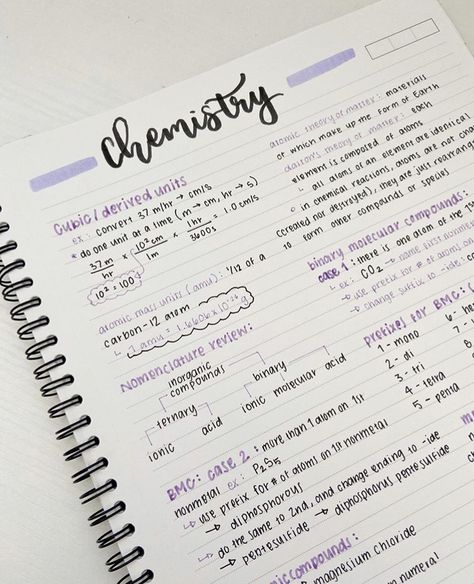 chemistry
cubic/derived units
ex: convert 37 m/hr → cm/s
* do one unit at a time (m → cm, hr → s)
37m/hr × 10² cm/1m × 1hr/3600s = 1.0 cm/s
10² = 100
atomic mass units (amu): 1/12 of a
carbon-12 atom
↳ 1 amu = 1.6606 × 10⁻²⁴ g
Nomenclature review:
inorganic
compounds
ternary
ionic acid
binary
ionic molecular acid
BMC: case 2: more than 1 atom on 1st
nonmetal ex: P₂S₅
↳ use prefix for # of atoms on 1st nonmetal
→ diphosphorous
↳ do the same to 2nd, and change ending to -ide
→ pentesulfide → diphosphorus pentesulfide
atomic theory of matter: materials
of which make up the form of Earth
dalton's theory of matter: each
element is composed of atoms
↳ all atoms of an element are identical
○ in chemical reactions, atoms are not
(created nor destroyed), they are just
to form other compounds or species
binary molecular compounds:
case 1: there is one atom of the
ex: CO₂ → name first
↳ use prefix for # of atoms
↳ change suffix to -ide:
prefixes for BMC:
1 - mono
2 - di
3 - tri
4 - tetra
5 - penta
6 -
7 -
8
9
compounds:
magnesium chloride